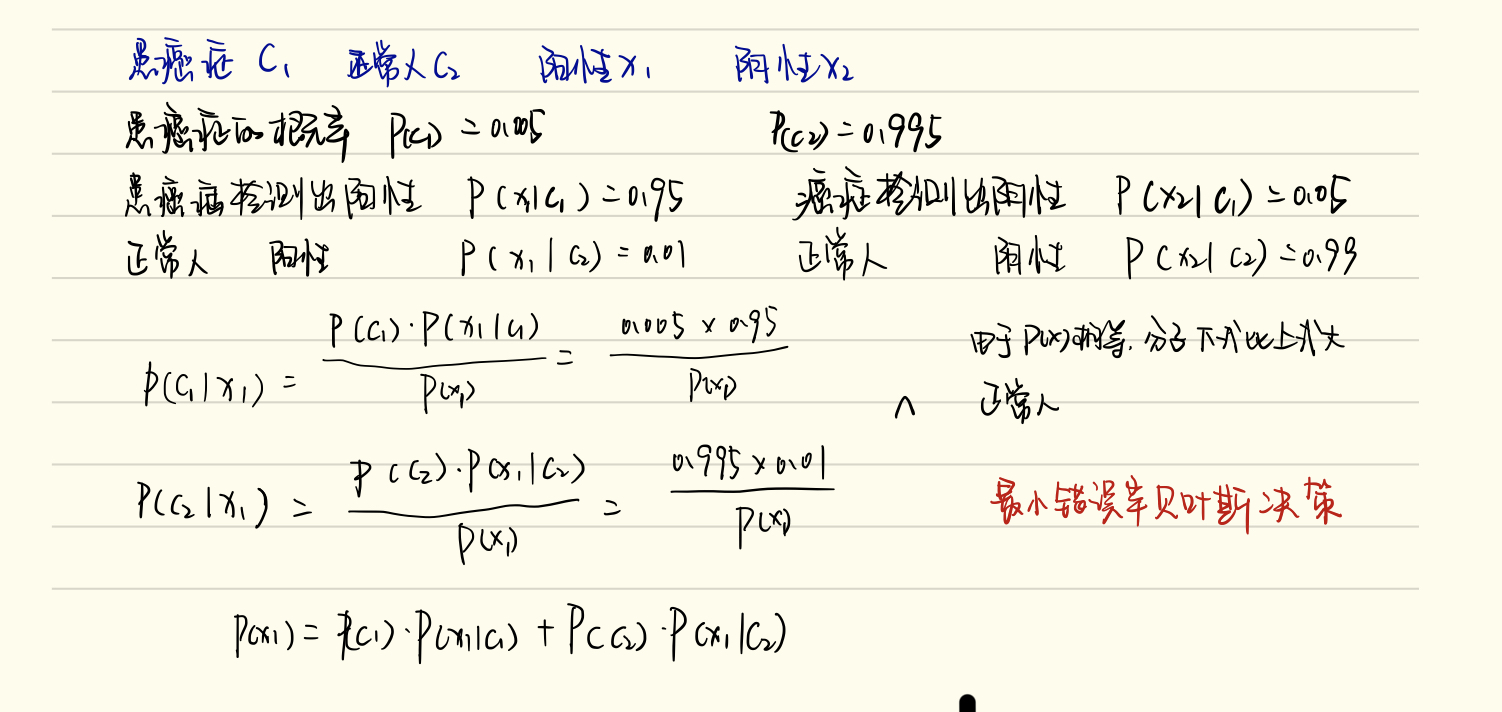 患癌症 C₁ 正常人 C₂ 阳性 x₁ 阴性 x₂
患癌症的概率 P(C₁) = 0.005 P(C₂) = 0.995
患癌症检测出阳性 P(x₁|C₁) = 0.95 癌症检测出阴性 P(x₂|C₁) = 0.05
正常人 阳性 P(x₁|C₂) = 0.01 正常人 阴性 P(x₂|C₂) = 0.99
P(C₁|x₁) = P(C₁)·P(x₁|C₁) / P(x₁) = 0.005 × 0.95 / P(x₁) 由于P(x)相等,分子下式比上式大
∧ 正常人
P(C₂|x₁) = P(C₂)·P(x₁|C₂) / P(x₁) = 0.995 × 0.01 / P(x₁)
最小错误率贝叶斯决策
P(x₁) = P(C₁)·P(x₁|C₁) + P(C₂)·P(x₁|C₂)